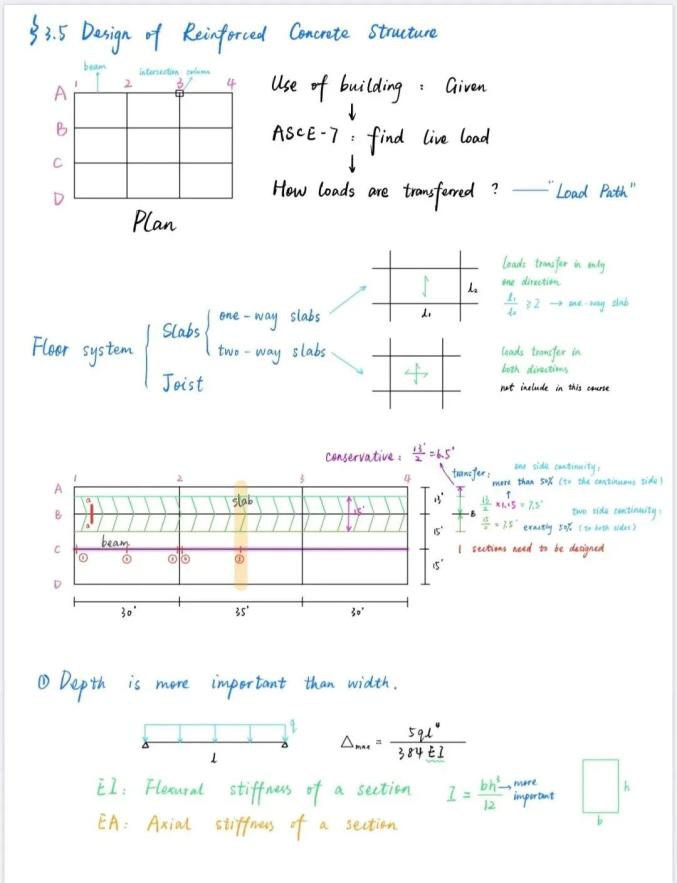 §3.5 Design of Reinforced Concrete Structure
beam
intersection column
1 2 3 4
A
B
C
D
Plan
Use of building : Given
↓
ASCE-7 : find live load
↓
How loads are transferred ? — "Load Path"
Floor system
Slabs
one-way slabs
two-way slabs
Joist
l₁
l₂
Loads transfer in only
one direction
l₁/l₂ ≥ 2 → one-way slab
Loads transfer in
both directions
not include in this course
conservative : 13'/2 = 6.5'
1 2 3 4
A
B
C
D
slab
beam
a
a
15'
① ② ③ ④ ⑤
13'
15'
15'
30' 35' 30'
transfer :
one side continuity :
more than 50% (to the continuous side)
B
13/2 ×1.15 = 7.5'
two side continuity :
15/2 = 7.5' exactly 50% (to both sides)
| sections need to be designed
① Depth is more important than width.
q
l
Δmax = 5ql⁴ / 384 EI
EI : Flexural stiffness of a section
I = bh³/12 → more important
EA : Axial stiffness of a section
h
b